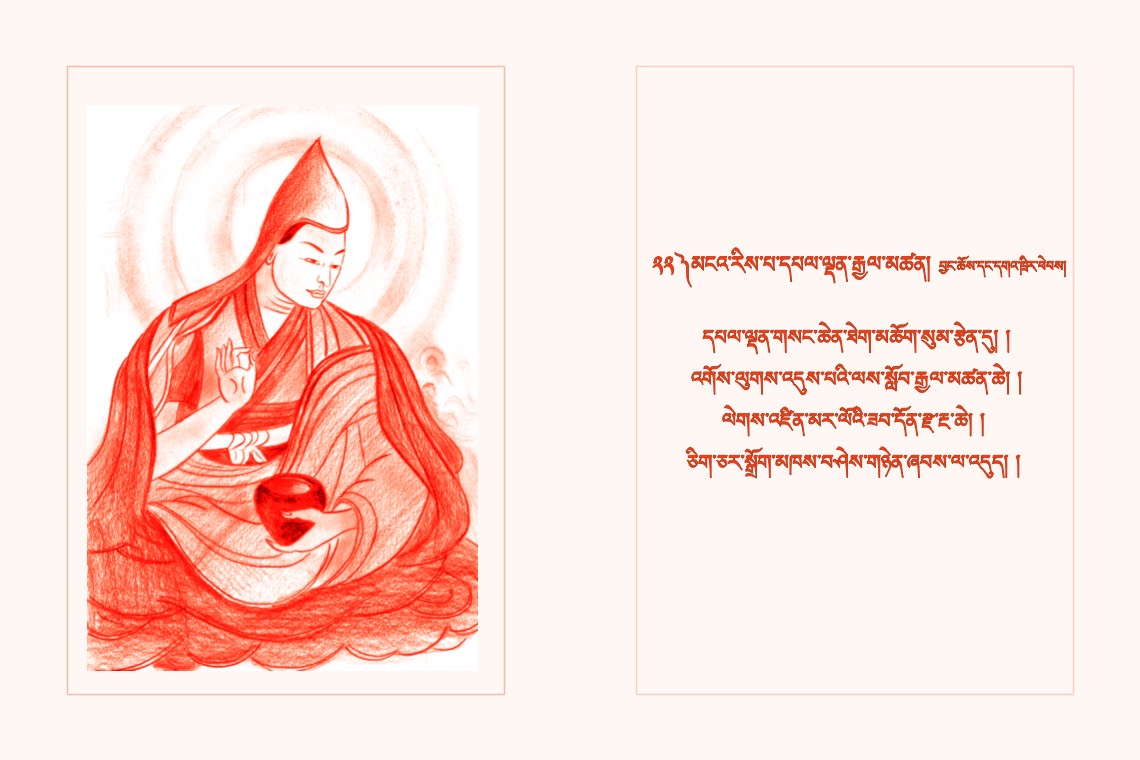 ༢༢ ༽མངའ་རིས་པ་དཔལ་ལྡན་རྒྱལ་མཚན། བྱང་ཆོས་དང་དགའ་ཁྲིར་ཕེབས།
དཔལ་ལྡན་གསང་ཆེན་ཐེག་མཆོག་སུམ་རྩེན་དུ། །
འགོས་ལུགས་འདུས་པའི་ལས་སློབ་རྒྱལ་མཚན་ཆེ། །
ལེགས་འཛིན་མར་ལོའི་ཟབ་དོན་རྫ་ར་ཆེ། །
ཅིག་ཅར་སྒྲོག་མཁས་བཤེས་གཉེན་ཞབས་ལ་འདུད། །